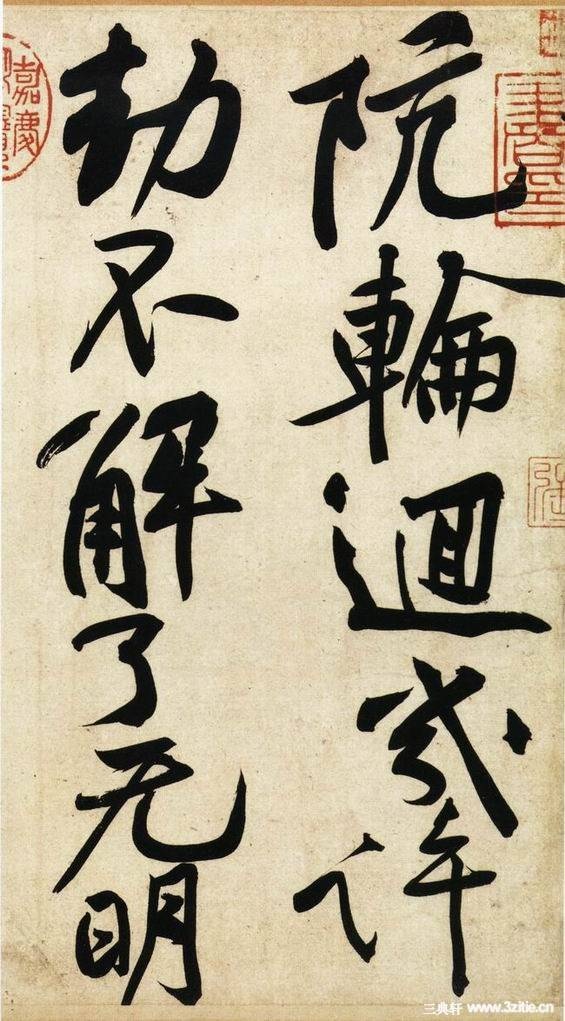 阬輪迴幾許
劫不解了无明
嘉慶
三典轩 www.3zitie.cn